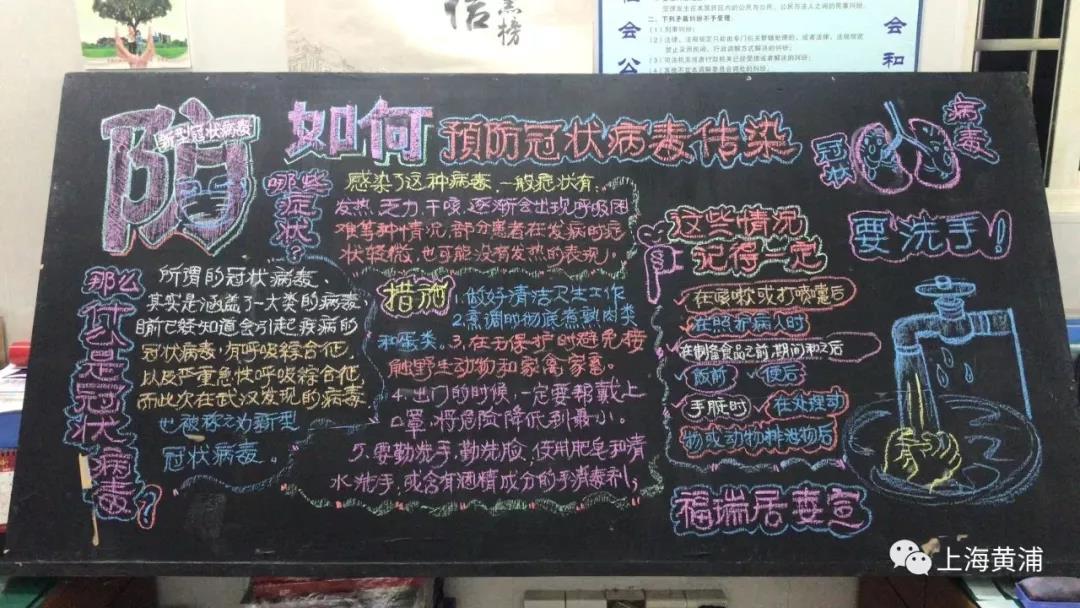 信
黑榜
社会公
会和
二、下列矛盾纠纷不予受理：
（1）刑事纠纷；
防
新型冠状病毒
如何预防冠状病毒传染
冠状
病毒
哪些症状？
感染了这种病毒，一般症状有：
发热、乏力、干咳、逐渐会出现呼吸困
难等种情况，部分患者在发病时症
状轻微，也可能没有发热的表现。
那么什么是冠状病毒？
所谓的冠状病毒、
其实是涵盖了一大类的病毒，
目前已疑知道会引起疾病的
冠状病毒，有呼吸综合征，
以及严重急性呼吸综合征
而此次在武汉发现的病毒
也被称之为新型
冠状病毒。
措施
1.做好清洁卫生工作
2.烹调时彻底煮熟肉类
和蛋类。3.在无保护时避免接
触野生动物和家禽家畜。
4.出门的时候，一定要帮戴上
口罩，将危险降低到最小。
5.要勤洗手，勤洗脸，使用肥皂和清
水洗手，或含有酒精成分的手消毒剂；
这些情况
记得一定
要洗手！
在咳嗽或打喷嚏后
在照护病人时
在制备食品之前、期间和之后
饭前
便后
手脏时
在处理动
物或动物排泄物后
福瑞居委宣
上海黄浦